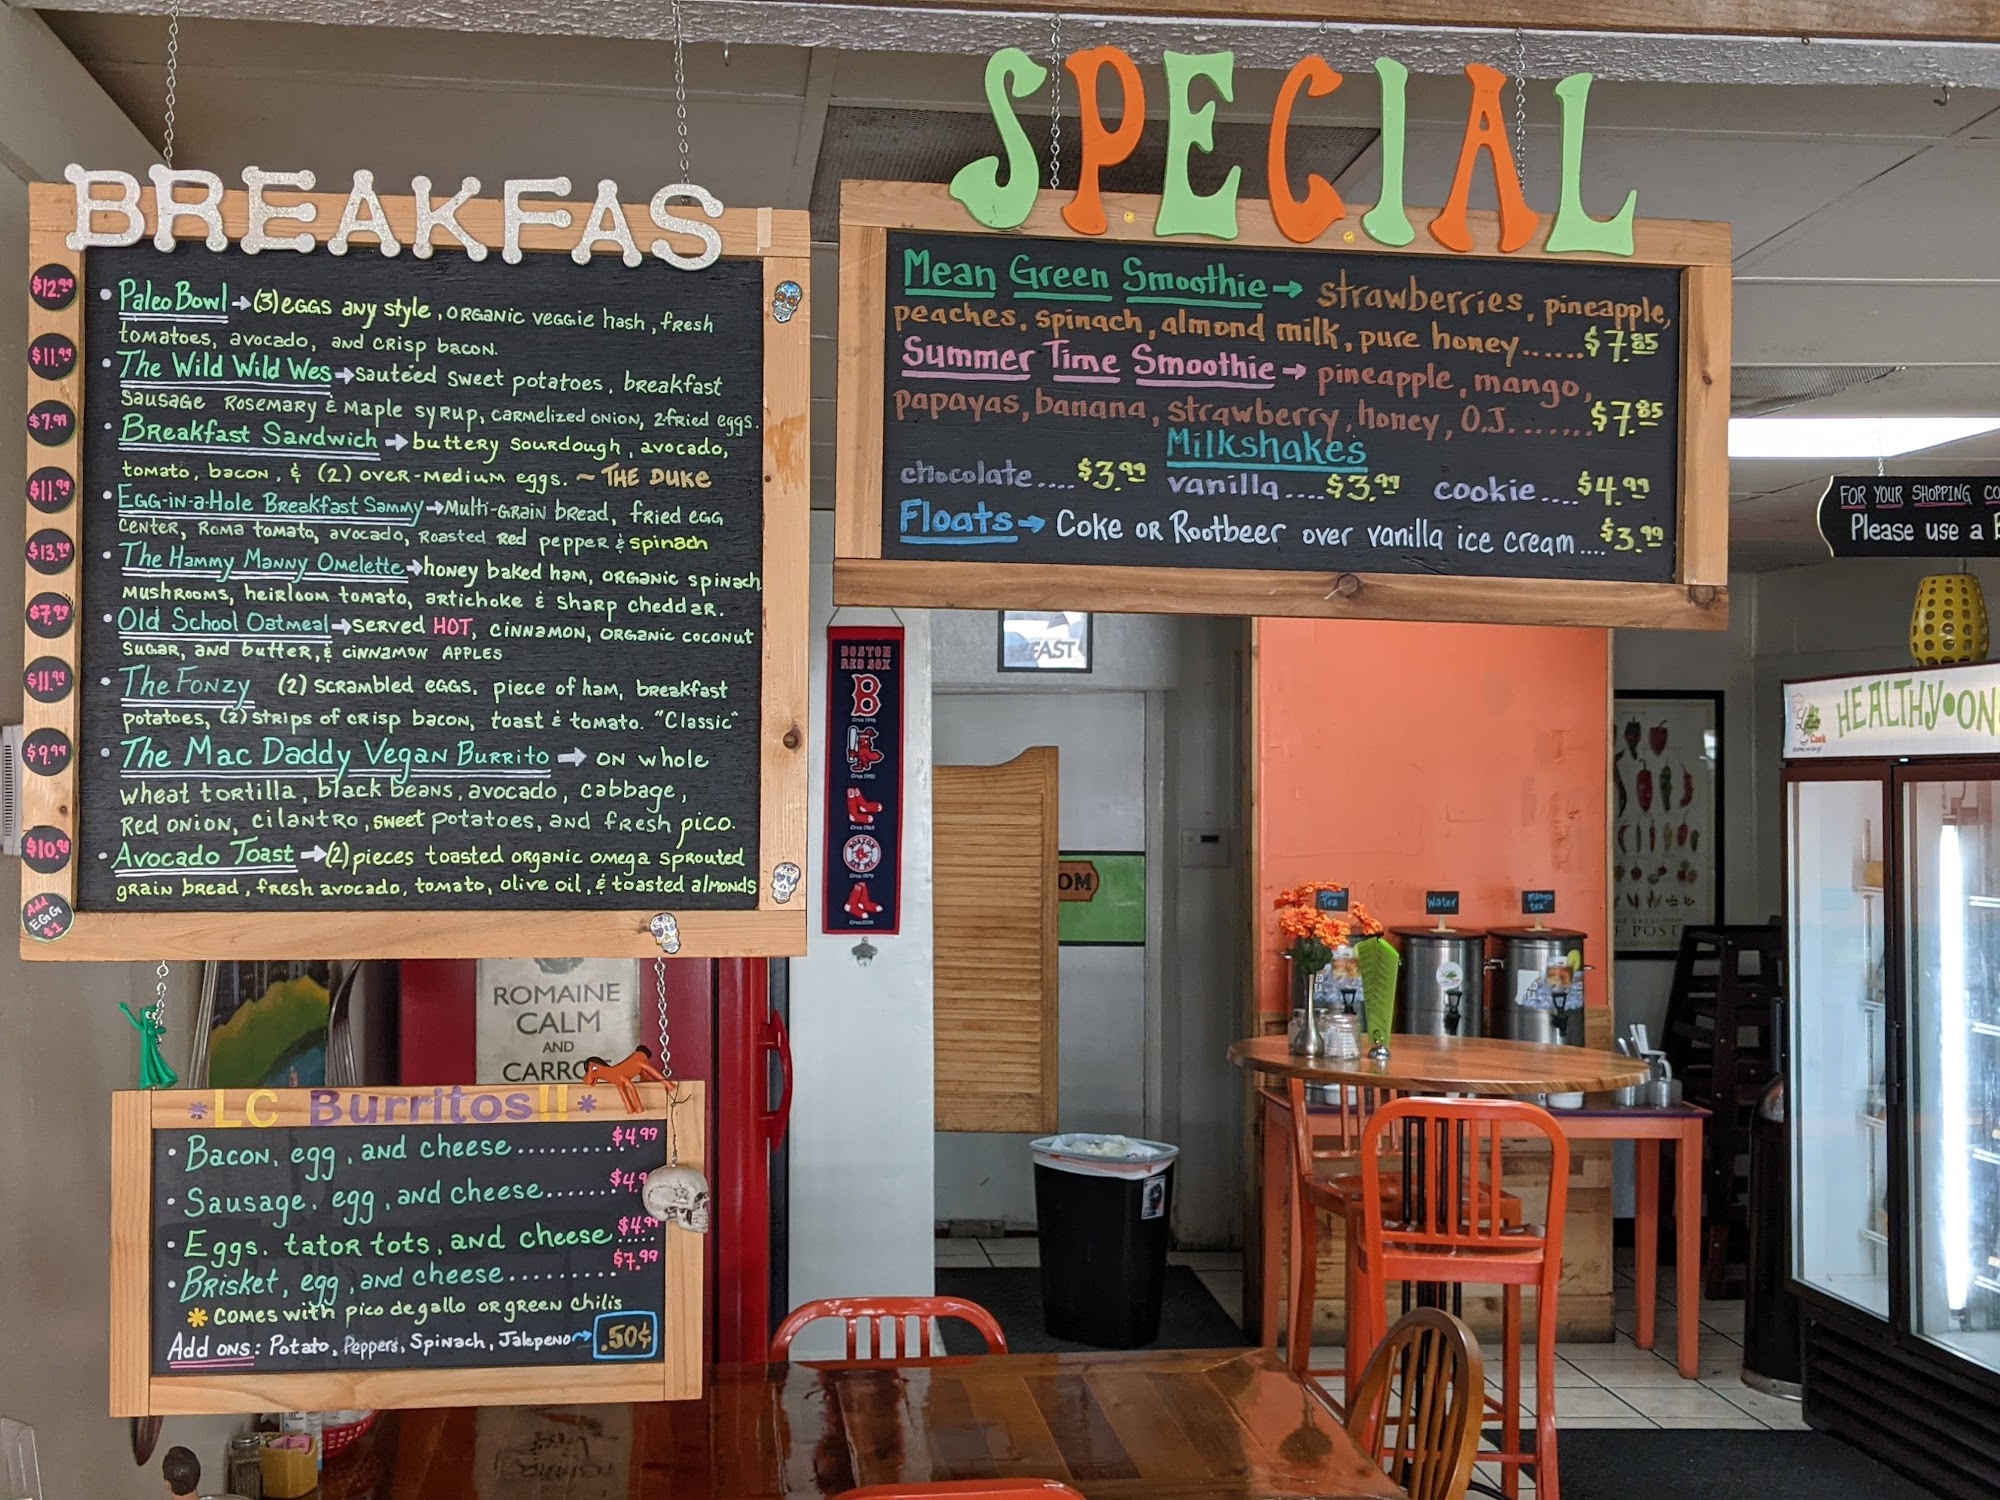 BREAKFAS
$12.99
• Paleo Bowl → (3) eggs any style, organic veggie hash, fresh
tomatoes, avocado, and crisp bacon.
$11.99
• The Wild Wild Wes → sauteéd sweet potatoes, breakfast
sausage Rosemary & Maple syrup, carmelized onion, 2 fried eggs.
$7.99
• Breakfast Sandwich → buttery sourdough, avocado,
tomato, bacon, & (2) over-medium eggs. ~ THE DUKE
$11.99
• Egg-in-a-Hole Breakfast Sammy → Multi-grain bread, fried egg
center, Roma tomato, avocado, Roasted Red pepper & spinach
$13.49
• The Hammy Manny Omelette → honey baked ham, organic spinach
mushrooms, heirloom tomato, artichoke & sharp cheddar.
$7.99
• Old School Oatmeal → served HOT, cinnamon, organic coconut
sugar, and butter, & cinnamon apples
$11.99
• The Fonzy (2) scrambled eggs, piece of ham, breakfast
potatoes, (2) strips of crisp bacon, toast & tomato. "Classic"
$9.99
• The Mac Daddy Vegan Burrito → on whole
wheat tortilla, black beans, avocado, cabbage,
Red onion, cilantro, sweet potatoes, and fresh pico.
$10.99
• Avocado Toast → (2) pieces toasted organic omega sprouted
grain bread, fresh avocado, tomato, olive oil, & toasted almonds
Add
EGG
$1
S.P.E.C.I.A.L
Mean Green Smoothie → strawberries, pineapple,
peaches, spinach, almond milk, pure honey......$7.85
Summer Time Smoothie → pineapple, mango,
papayas, banana, strawberry, honey, O.J. .......$7.85
Milkshakes
chocolate....$3.99 vanilla....$3.99 cookie....$4.99
Floats → Coke or Rootbeer over vanilla ice cream....$3.99
FOR YOUR SHOPPING CO
Please use a B
HEALTHY•ON
Cook
BOSTON
RED SOX
B
EAST
OM
Tea
Water
Mango
tea
POST
ROMAINE
CALM
AND
CARRO
*LC Burritos!!*
• Bacon, egg, and cheese..........$4.99
• Sausage, egg, and cheese.......$4.9
• Eggs, tator tots, and cheese.....$4.99
• Brisket, egg, and cheese.........$7.99
* Comes with pico de gallo or green chilis
Add ons: Potato, Peppers, Spinach, Jalepeno→ .50¢